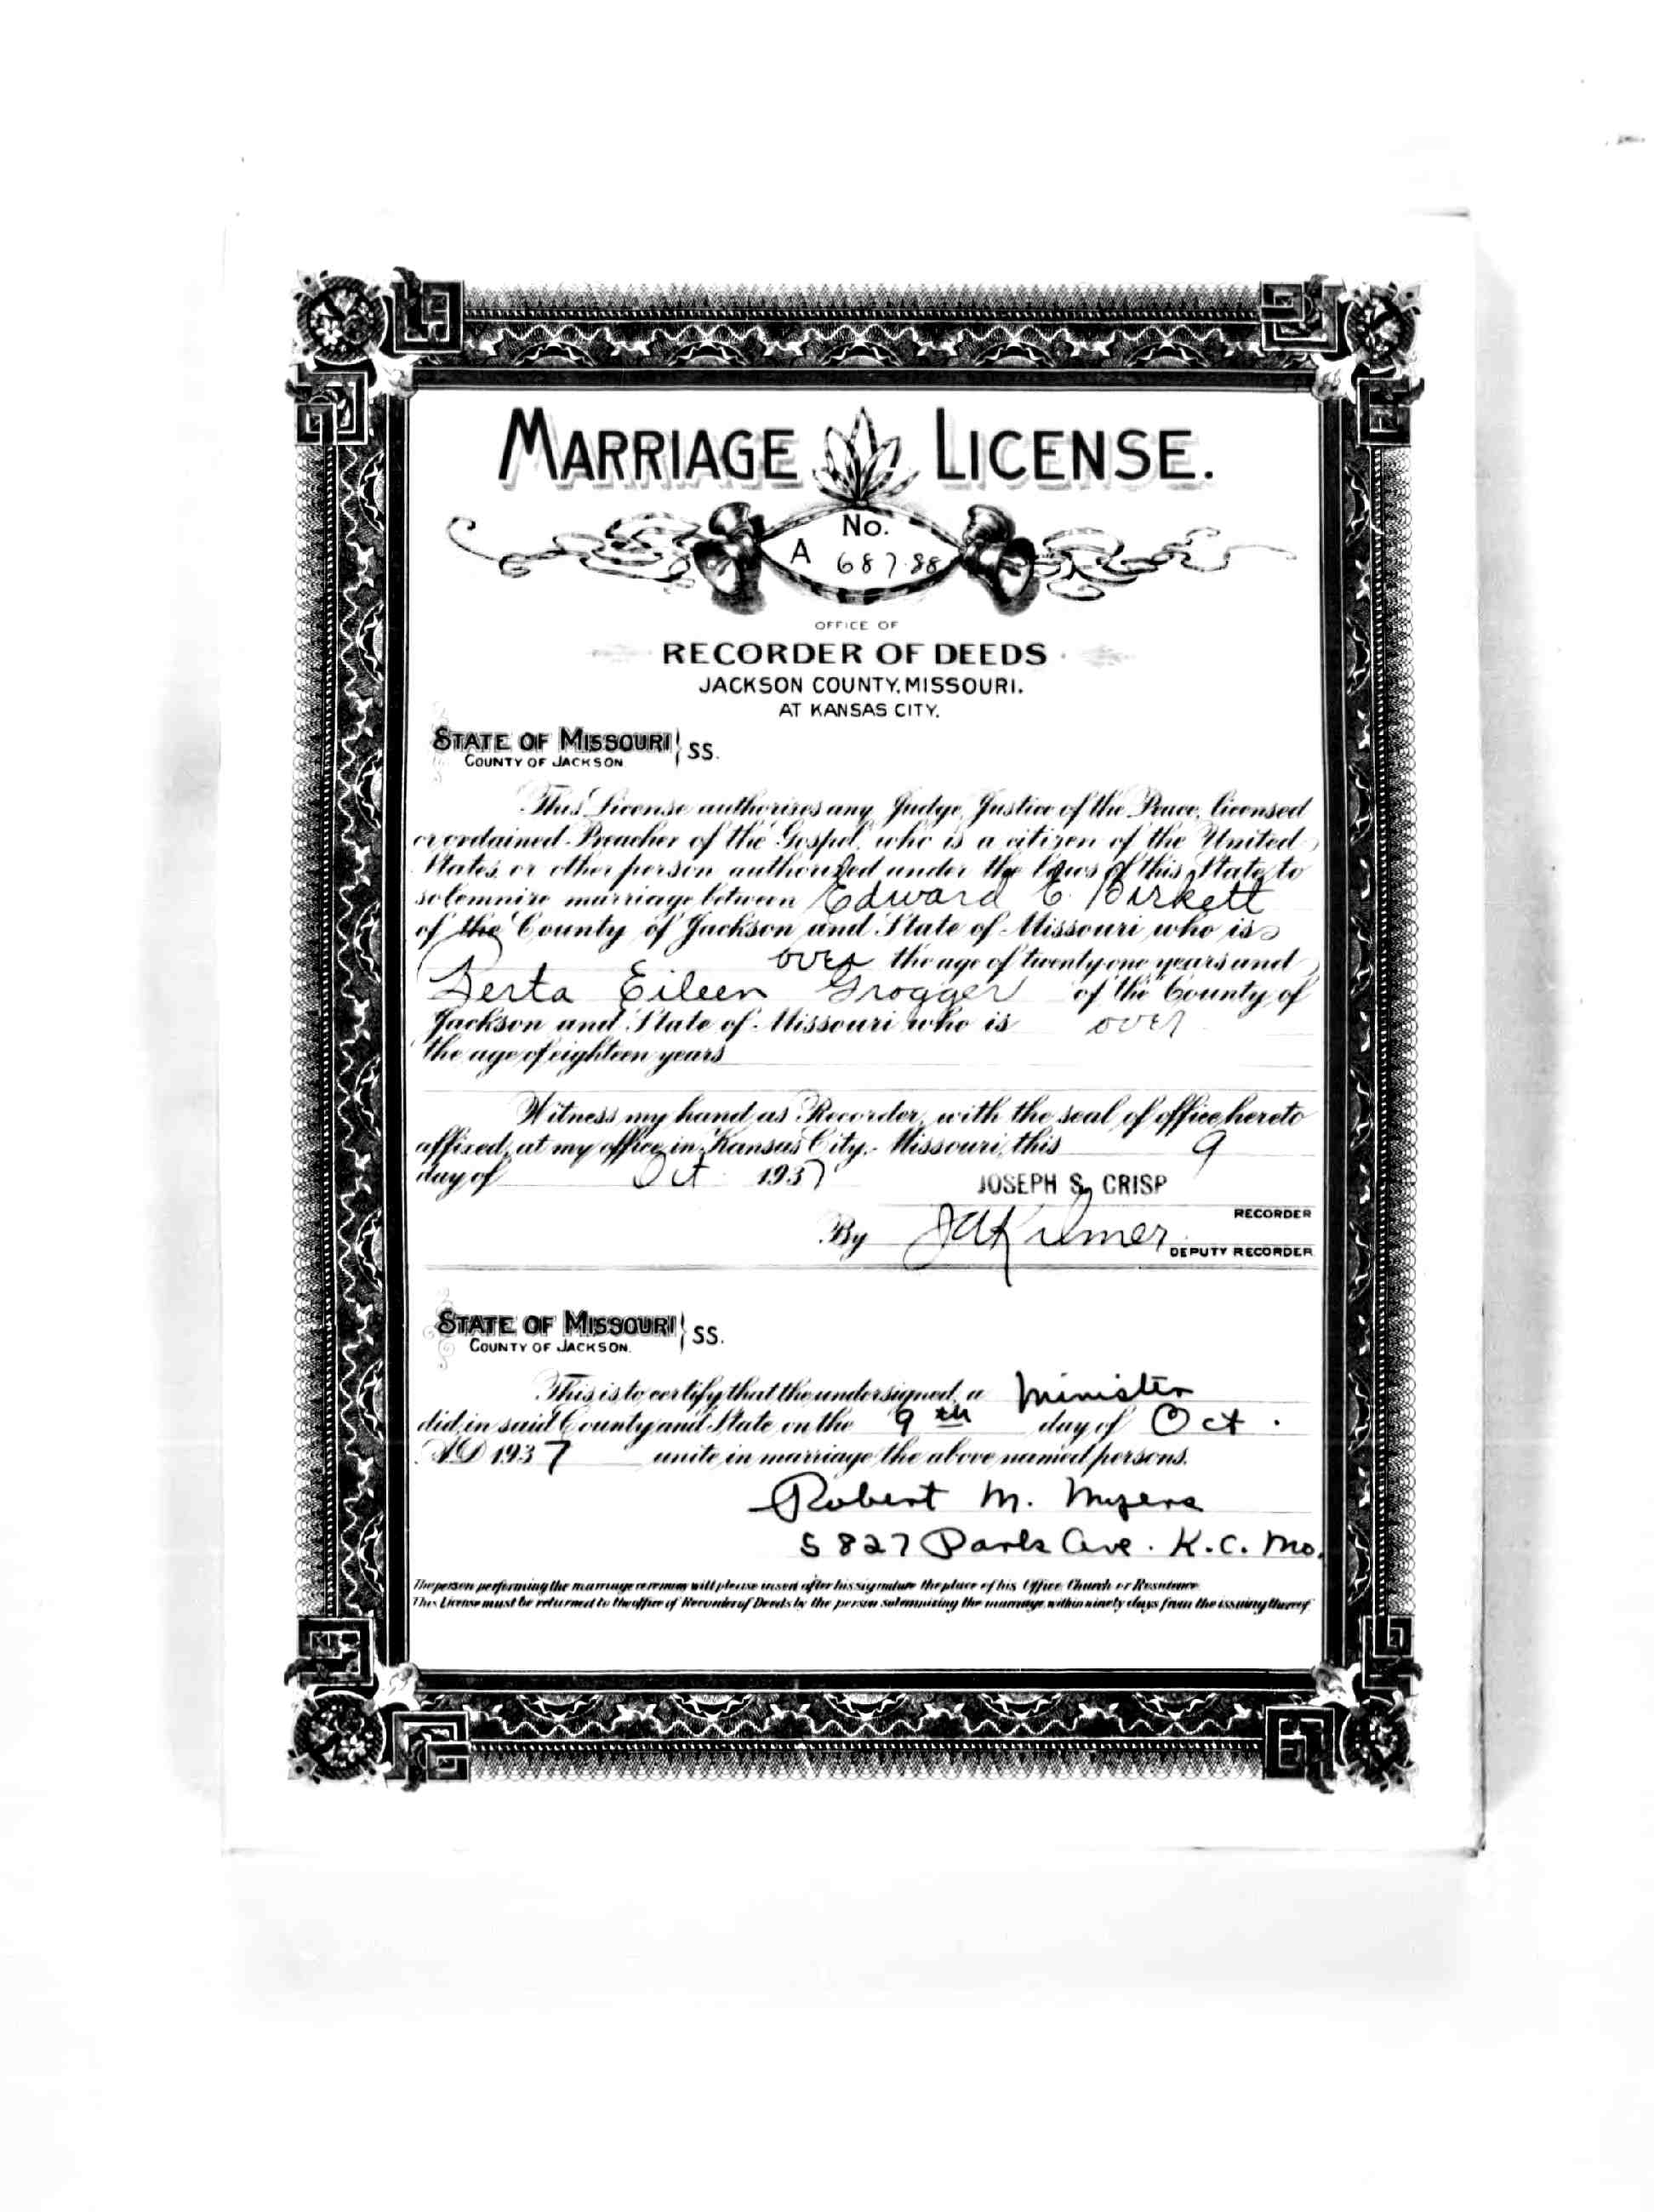 MARRIAGE LICENSE.
No.
A 68788
OFFICE OF
RECORDER OF DEEDS
JACKSON COUNTY, MISSOURI.
AT KANSAS CITY.
STATE OF MISSOURI } SS.
COUNTY OF JACKSON
This License authorizes any Judge, Justice of the Peace, licensed
or ordained Preacher of the Gospel, who is a citizen of the United
States, or other person authorized under the laws of this State, to
solemnize marriage between Edward E. Birkett
of the County of Jackson and State of Missouri, who is
over the age of twenty one years and
Eileen Grogger of the County of
Jackson and State of Missouri who is over
the age of eighteen years
Witness my hand as Recorder, with the seal of office hereto
affixed, at my office in Kansas City, Missouri, this 9
day of Oct 1937
JOSEPH S. CRISP
RECORDER
By J A Kilmer DEPUTY RECORDER
STATE OF MISSOURI } SS.
COUNTY OF JACKSON.
This is to certify that the undersigned, a Minister
did, in said County and State on the 9th day of Oct.
AD 1937 unite in marriage the above named persons.
Robert M. Myers
5827 Park Ave. K.C. Mo.
The person performing the marriage ceremony will please insert after his signature the place of his Office, Church or Residence.
This License must be returned to the office of Recorder of Deeds by the person solemnizing the marriage, within ninety days from the issuing thereof.